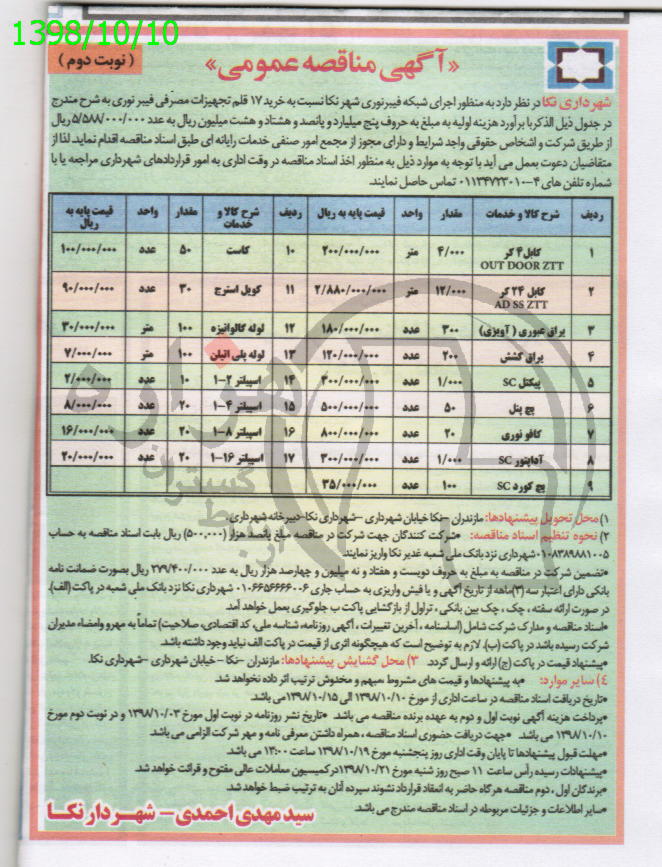 1398/10/10
«آگهی مناقصه عمومی»
(نوبت دوم)
شهرداری نکا در نظر دارد به منظور اجرای شبکه فیبرنوری شهر نکا نسبت به خرید ۱۷ قلم تجهیزات مصرفی فیبر نوری به شرح مندرج
در جدول ذیل الذکر با برآورد هزینه اولیه به مبلغ به حروف پنج میلیارد و پانصد و هشتاد و هشت میلیون ریال به عدد ۵/۵۸۸/۰۰۰/۰۰۰ ریال
از طریق شرکت و اشخاص حقوقی واجد شرایط و دارای مجوز از مجمع امور صنفی خدمات رایانه ای طبق اسناد مناقصه اقدام نماید. لذا از
متقاضیان دعوت بعمل می آید با توجه به موارد ذیل به منظور اخذ اسناد مناقصه در وقت اداری به امور قراردادهای شهرداری مراجعه یا با
شماره تلفن های ۴-۰۱۱۳۴۷۲۳۰۱۰ تماس حاصل نمایند.
ردیف شرح کالا و خدمات مقدار واحد قیمت پایه به ریال ردیف شرح کالا و خدمات مقدار واحد قیمت پایه به ریال
۱ کابل ۴ کر OUT DOOR ZTT ۴/۰۰۰ متر ۲۰۰/۰۰۰/۰۰۰ ۱۰ کاست ۵۰ عدد ۱۰۰/۰۰۰/۰۰۰
۲ کابل ۲۴ کر AD SS ZTT ۱۲/۰۰۰ متر ۲/۸۸۰/۰۰۰/۰۰۰ ۱۱ کویل استرج ۳۰ عدد ۹۰/۰۰۰/۰۰۰
۳ یراق عبوری (آویزی) ۳۰۰ عدد ۱۸۰/۰۰۰/۰۰۰ ۱۲ لوله گالوانیزه ۱۰۰ متر ۳۰/۰۰۰/۰۰۰
۴ یراق کشش ۲۰۰ عدد ۱۲۰/۰۰۰/۰۰۰ ۱۳ لوله پلی اتیلن ۱۰۰ متر ۷/۰۰۰/۰۰۰
۵ پیگتل SC ۱/۰۰۰ عدد ۳۰۰/۰۰۰/۰۰۰ ۱۴ اسپیلتر ۲-۱ ۱۰ عدد ۲/۰۰۰/۰۰۰
۶ پچ پنل ۵۰ عدد ۵۰۰/۰۰۰/۰۰۰ ۱۵ اسپیلتر ۴-۱ ۲۰ عدد ۸/۰۰۰/۰۰۰
۷ کافو نوری ۲۰ عدد ۸۰۰/۰۰۰/۰۰۰ ۱۶ اسپیلتر ۸-۱ ۲۰ عدد ۱۶/۰۰۰/۰۰۰
۸ آداپتور SC ۱/۰۰۰ عدد ۳۰۰/۰۰۰/۰۰۰ ۱۷ اسپیلتر ۱۶-۱ ۲۰ عدد ۲۰/۰۰۰/۰۰۰
۹ پچ کورد SC ۱۰۰ عدد ۳۵/۰۰۰/۰۰۰
۱) محل تحویل پیشنهادها: مازندران -نکا خیابان شهرداری -شهرداری نکا-دبیرخانه شهرداری.
۲) نحوه تنظیم اسناد مناقصه: •شرکت کنندگان جهت شرکت در مناقصه مبلغ پانصد هزار (۵۰۰,۰۰۰) ریال بابت اسناد مناقصه به حساب
۰۱۰۸۳۸۹۸۸۱۰۰۵ شهرداری نزد بانک ملی شعبه غدیر نکا واریز نمایند.
•تضمین شرکت در مناقصه به مبلغ به حروف دویست و هفتاد و نه میلیون و چهارصد هزار ریال به عدد ۲۷۹/۴۰۰/۰۰۰ ریال بصورت ضمانت نامه
بانکی دارای اعتبار سه (۳)ماهه از تاریخ آگهی و یا فیش واریزی به حساب جاری ۰۱۰۶۶۵۶۶۶۶۰۰۶ شهرداری نکا نزد بانک ملی شعبه در پاکت (الف).
در صورت ارائه سفته ، چک ، چک بین بانکی ، تراول از بازگشایی پاکت ب جلوگیری بعمل خواهد آمد.
•اسناد مناقصه و مدارک شرکت شامل (اساسنامه ، آخرین تغییرات ، آگهی روزنامه، شناسه ملی، کد اقتصادی، صلاحیت) تماماً به مهر و امضاء مدیران
شرکت رسیده باشد در پاکت (ب). لازم به توضیح است که هیچگونه اثری از قیمت در پاکت الف نباید وجود داشته باشد.
•پیشنهاد قیمت در پاکت (ج) ارائه و ارسال گردد. ۳) محل گشایش پیشنهادها: مازندران -نکا - خیابان شهرداری -شهرداری نکا.
۴) سایر موارد: •به پیشنهادها و قیمت های مشروط ،مبهم و مخدوش ترتیب اثر داده نخواهد شد.
•تاریخ دریافت اسناد مناقصه در ساعت اداری از مورخ ۱۳۹۸/۱۰/۱۰ الی ۱۳۹۸/۱۰/۱۵می باشد.
•پرداخت هزینه آگهی نوبت اول و دوم به عهده برنده مناقصه می باشد. •تاریخ نشر روزنامه در نوبت اول مورخ ۱۳۹۸/۱۰/۰۳ و در نوبت دوم مورخ
۱۳۹۸/۱۰/۱۰ می باشد. •جهت دریافت حضوری اسناد مناقصه ، همراه داشتن معرفی نامه و مهر شرکت الزامی می باشد.
•مهلت قبول پیشنهادها تا پایان وقت اداری روز پنجشنبه مورخ ۱۳۹۸/۱۰/۱۹ ساعت ۱۳:۰۰ می باشد.
•پیشنهادات رسیده رأس ساعت ۱۱ صبح روز شنبه مورخ ۱۳۹۸/۱۰/۲۱درکمیسیون معاملات عالی مفتوح و قرائت خواهد شد.
•برندگان اول ، دوم مناقصه هرگاه حاضر به انعقاد قرارداد نشوند سپرده آنان به ترتیب ضبط خواهد شد.
•سایر اطلاعات و جزئیات مربوطه در اسناد مناقصه مندرج می باشد.
سید مهدی احمدی - شهردار نکا